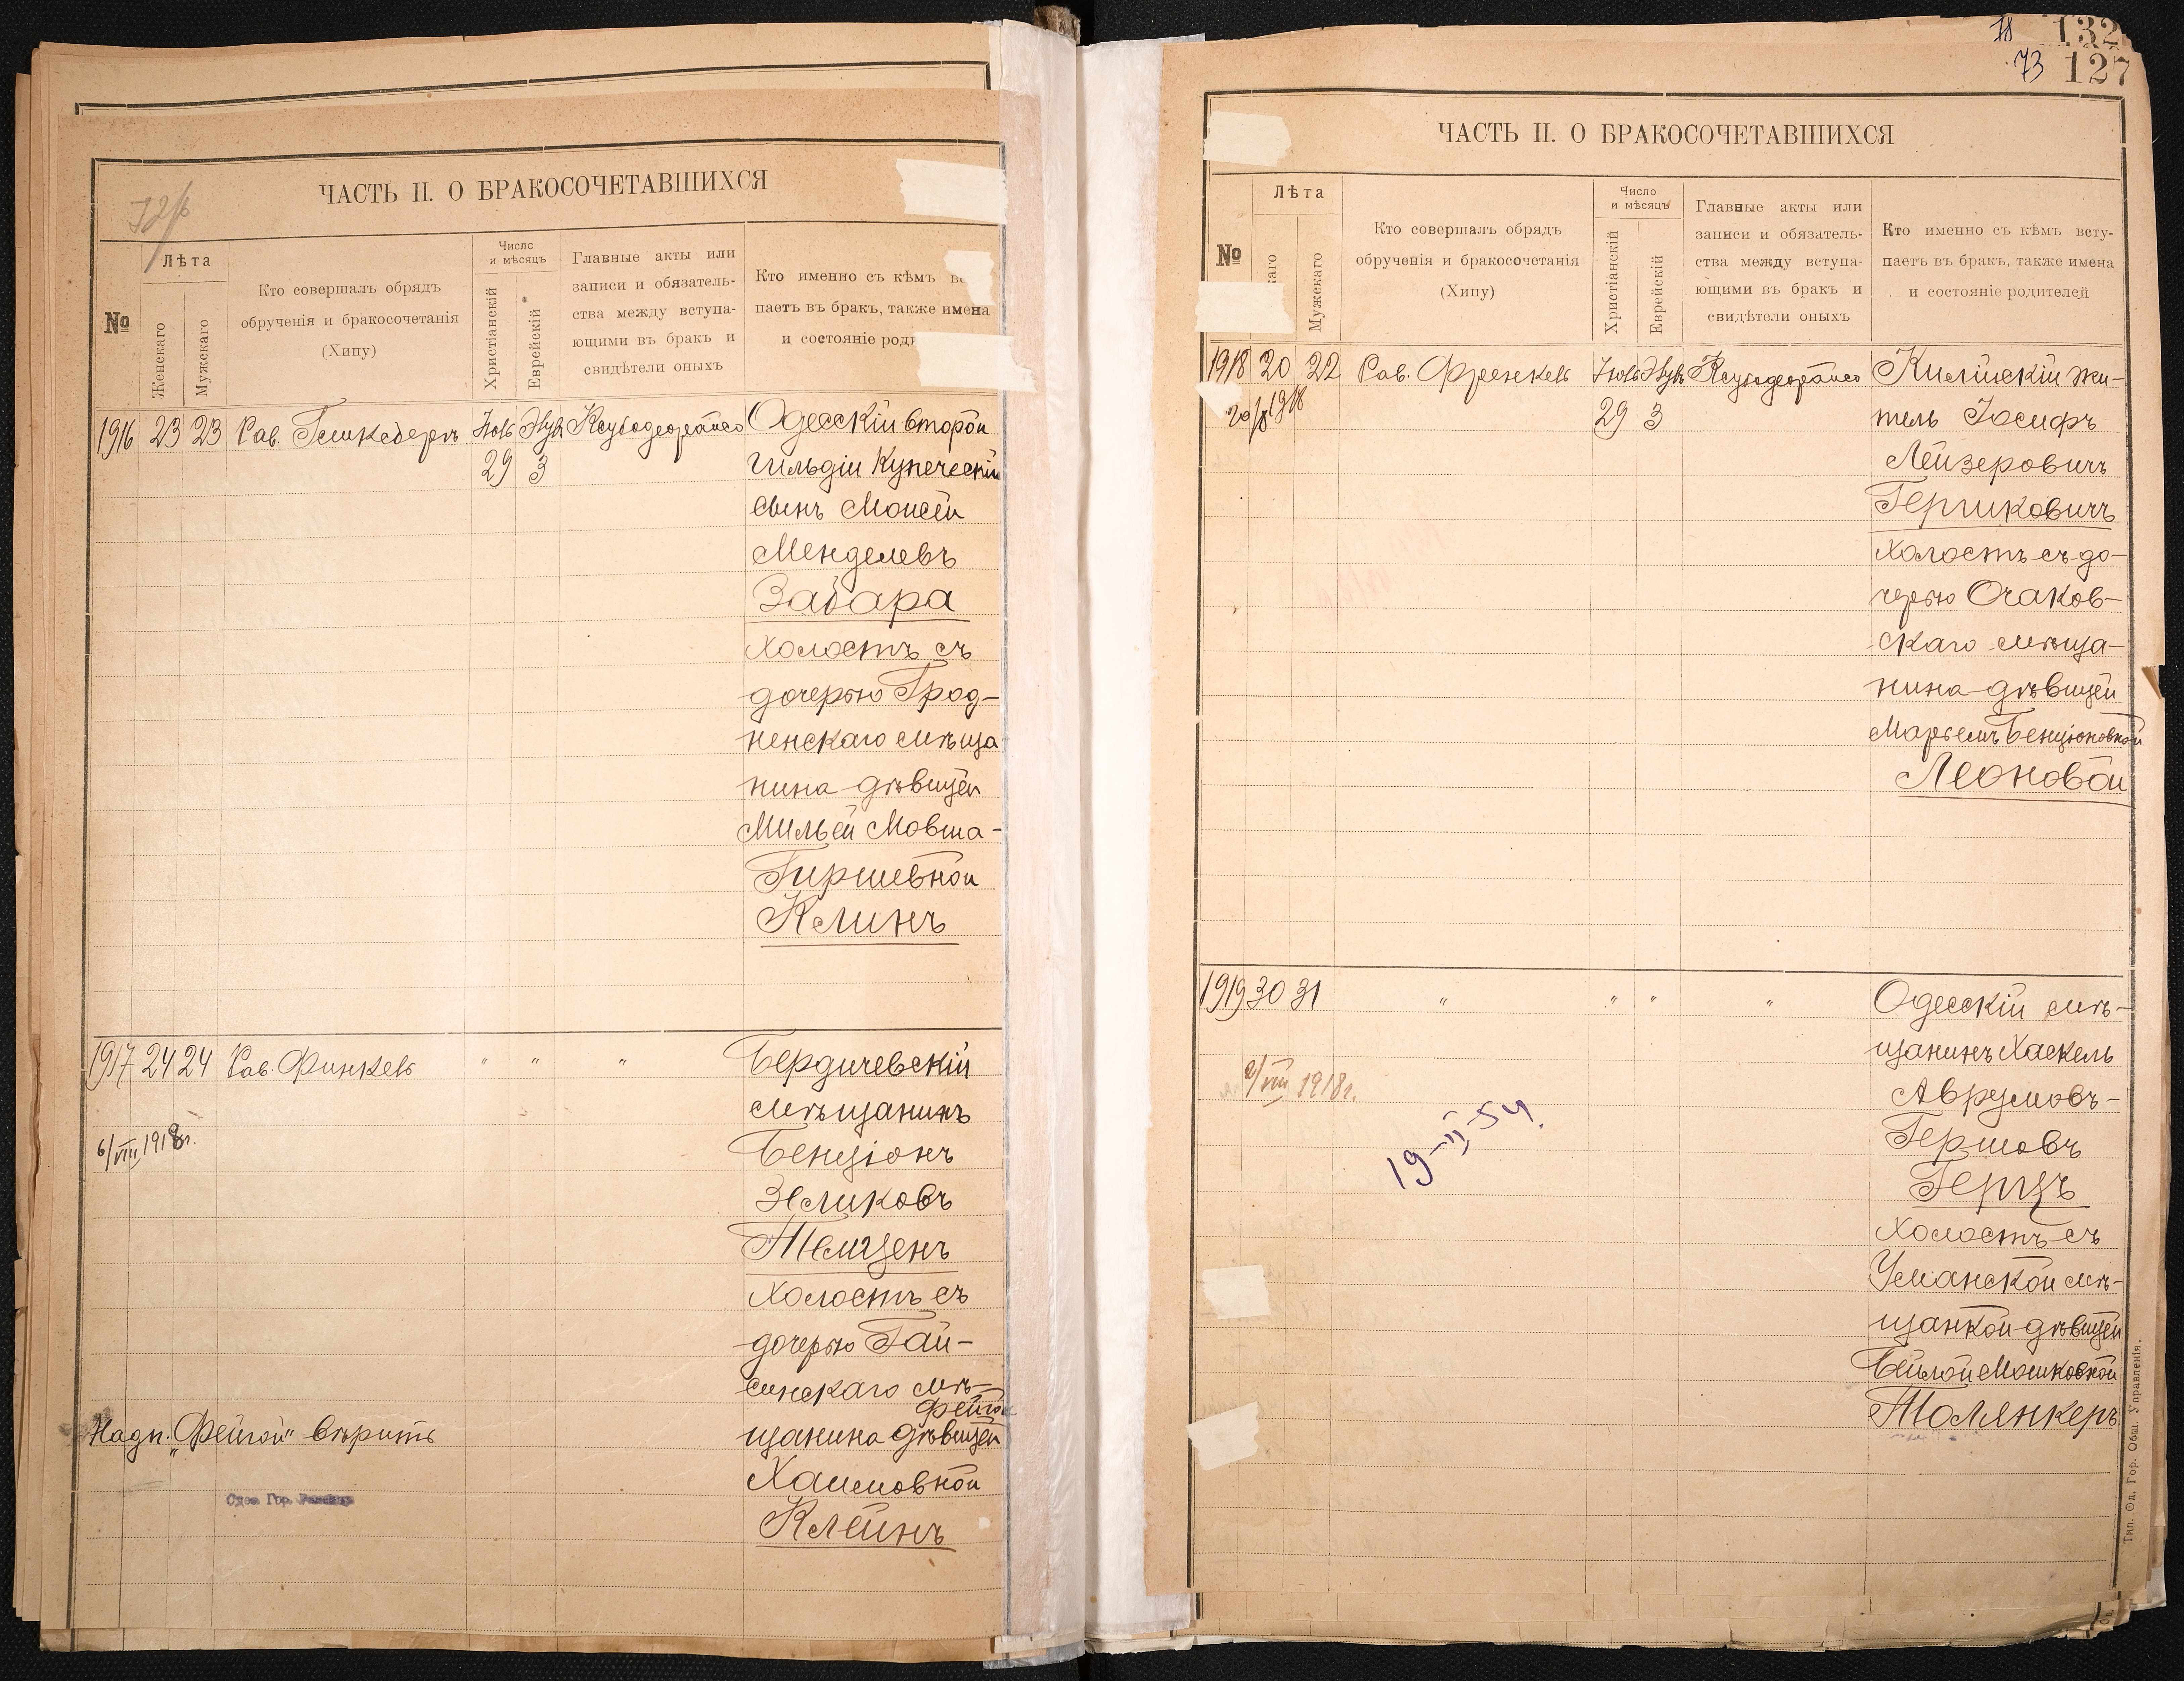 ЧАСТЬ II. О БРАКОСОЧЕТАВШИХСЯ
№
Лѣта
Женскаго
Мужскаго
Кто совершалъ обрядъ
обрученія и бракосочетанія
(Хипу)
Число
и мѣсяцъ
Христіанскій
Еврейскій
Главные акты или
записи и обязатель-
ства между вступа-
ющими въ бракъ и
свидѣтели оныхъ
Кто именно съ кѣмъ вс
паетъ въ бракъ, также имена
и состояніе род
1916 23 23 Рав.
Одесскій второй
29 3 гильдіи купеческій
сынъ Моисей
Менделевъ
Забара
холостъ съ
дочерью Грод-
ненскаго мѣща
нина дѣвицей
Мильей Мовша-
Гиршевной
Клинъ
1917 24 24 Рав. Финкель " " " Бердичевскій
мѣщанинъ
6/VIII 1918г.
Бенціонъ
Зеликовъ
Темценъ
холостъ съ
дочерью Гай-
синскаго мѣ-
Фейгой
щанина дѣвицей
Надп. „Фейгой" вѣрить
Хаимовной
Клейнъ
78 132
73 127
ЧАСТЬ II. О БРАКОСОЧЕТАВШИХСЯ
№
Лѣта
каго
Мужскаго
Кто совершалъ обрядъ
обрученія и бракосочетанія
(Хипу)
Число
и мѣсяцъ
Христіанскій
Еврейскій
Главные акты или
записи и обязатель-
ства между вступа-
ющими въ бракъ и
свидѣтели оныхъ
Кто именно съ кѣмъ всту-
паетъ въ бракъ, также имена
и состояніе родителей
1918 20 22 Рав. Френкель Килійскій жи-
29 3 тель Іосифъ
Лейзеровичъ
Гершковичъ
холостъ съ до-
черью Очаков-
скаго мѣща-
нина дѣвицей
Марьемъ Бенціоновной
Леоновой
1919 30 31 " " " " Одесскій мѣ-
щанинъ Хаскель
2/VIII 1918г.
Аврумовъ-
19-II-54.
Гершовъ
Герцъ
холостъ съ
Уманской мѣ-
щанкой дѣвицей
Бейлой Мошковной
Толянкеръ
Тип. Од. Гор. Общ. Управленія.